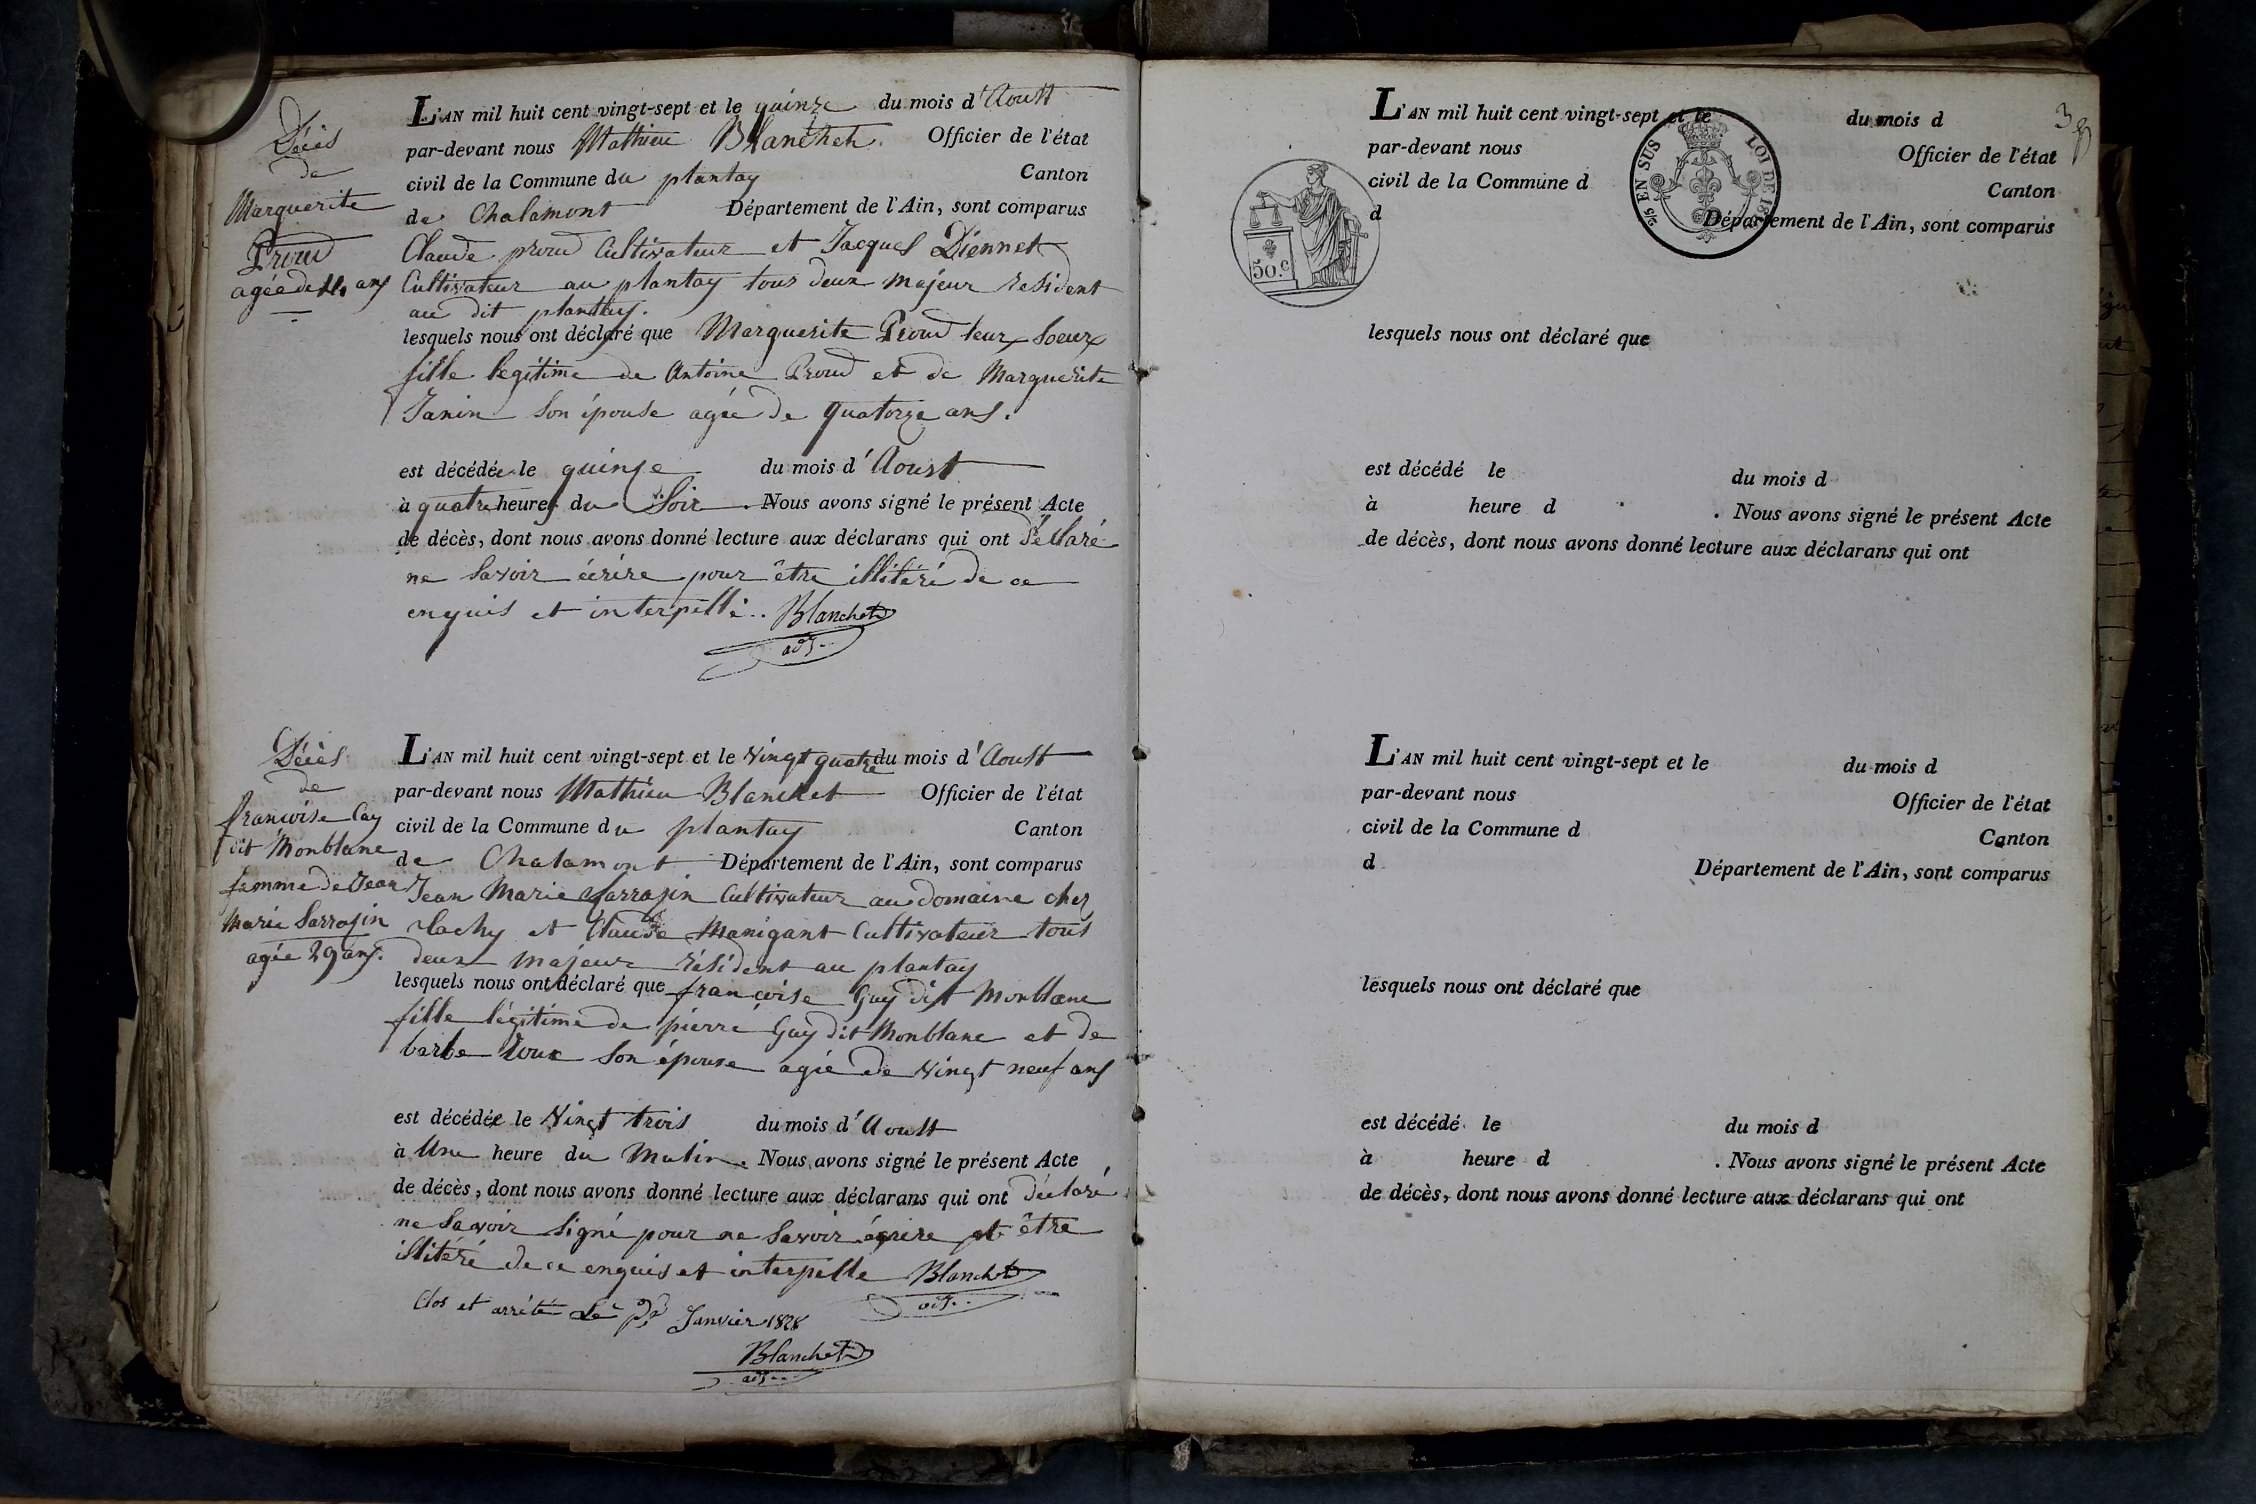 Décès
de
Marguerite
Proud
agée de 14 ans
L'AN mil huit cent vingt-sept et le quinze du mois d'Aoust
par-devant nous Mathieu Blanchet Officier de l'état
civil de la Commune du plantay Canton
de Chalamont Département de l'Ain, sont comparus
Claude proud Cultivateur et Jacques Diennet
Cultivateur au plantay tous deux majeur resident
au dit plantay.
lesquels nous ont déclaré que Marguerite Proud leur soeur
fille légitime de Antoine Proud et de Marguerite
Janin son épouse agée de quatorze ans.
est décédée le quinze du mois d'Aoust
à quatre heures du Soir. Nous avons signé le présent Acte
de décès, dont nous avons donné lecture aux déclarans qui ont déclaré
ne savoir écrire pour être illitéré de ce
enquis et interpellé.. Blanchet
adj..
Décès
de
francoise Guy
dit Monblanc
femme de Jean
Marie Sarrazin
agée 29 ans.
L'AN mil huit cent vingt-sept et le vingt quatre du mois d'Aoust
par-devant nous Mathieu Blanchet Officier de l'état
civil de la Commune du plantay Canton
de Chalamont Département de l'Ain, sont comparus
Jean Marie Sarrazin Cultivateur au domaine chez
et Claude Manigant Cultivateur tous
deux majeur résident au plantay
lesquels nous ont déclaré que françoise Guy dit Monblanc
fille légitime de pierre Guy dit Monblanc et de
barbe son épouse agée de vingt neuf ans
est décédée le vingt trois du mois d'Aoust
à Une heure du Matin. Nous avons signé le présent Acte
de décès, dont nous avons donné lecture aux déclarans qui ont déclaré
ne savoir signé pour ne savoir écrire et être
illitéré de ce enquis et interpelle Blanchet
adj..
Clos et arrêté Le Janvier 1828
Blanchet
adj...
38
50.c
5/10 EN SUS LOI DE 18
L'AN mil huit cent vingt-sept et le du mois d
par-devant nous Officier de l'état
civil de la Commune d Canton
d Département de l'Ain, sont comparus
lesquels nous ont déclaré que
est décédé le du mois d
à heure d . Nous avons signé le présent Acte
de décès, dont nous avons donné lecture aux déclarans qui ont
L'AN mil huit cent vingt-sept et le du mois d
par-devant nous Officier de l'état
civil de la Commune d Canton
d Département de l'Ain, sont comparus
lesquels nous ont déclaré que
est décédé le du mois d
à heure d . Nous avons signé le présent Acte
de décès, dont nous avons donné lecture aux déclarans qui ont